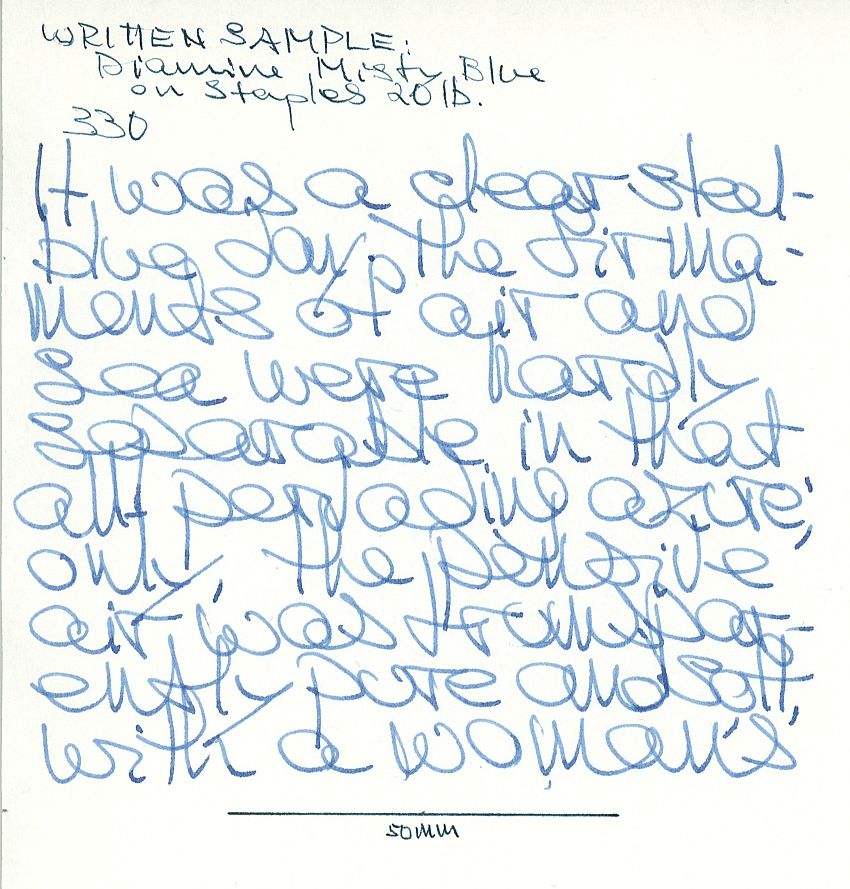 WRITTEN SAMPLE:
Diamine Misty Blue
on Staples 20 lb.
330
It was a clear steel-
blue day. The firma-
ments of air and
sea were hardly
separable in that
all-pervading azure;
only, the pensive
air was transpar-
ently pure and soft,
with a woman's
50MM